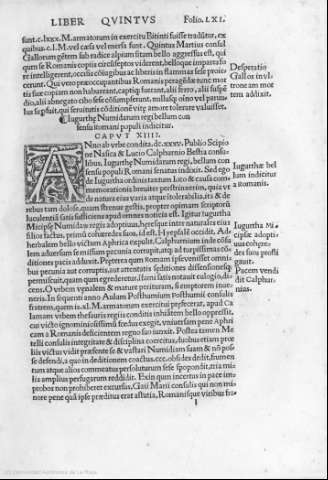 LIBER QVINTVS Folio. LXI.
sunt. c.lxxx. M. armatorum in exercitu Bitiniti fuisse traditur, ex
quibus. c.l. M. vel cæsa vel mersa sunt. Quintus Martius consul
Gallorum gētem sub radice alpium sitam bello aggressus est, qui
cum se Romanis copiis circūseptos viderent, belloque impares fo
re intelligerent, occisis cōiugibus ac liberis in flammas sese proie
cerunt. Qui vero præoccupantibus Romanis peragēdæ tunc mor
tis suæ copiam non habuerant, captiq; fuerant, alii ferro, alii suspē
dio, alii abnegato cibo sese cōsumpserunt, nullusq; oīno vel paruu
lus supfuit, qui seruitutis cōditionē vitę amore toleraret
Iugurthę Numidarum regi bellum con
sensu romani populi indicitur.
CAPVT XIIII.
Anno ab vrbe condita. dc.xxxv. Publio Scipio
ne Nasica & Lucio Calphurnio Bestia consu
libus, Iugurthę Numidarum regi, bellum con
sensu populi Romani senatus indixit. Sed ego
de Iugurtha ordinis tantum loco & causa com
memorationis breuiter perstrinxerim, quia
de natura eius varia atque itolerabili,
rebus tam dolose, quam strenue gestis, propter opimam scriptorū
luculentiā satis sufficiens apud omnes noticia est. Igitur Iugurtha
Micipsę Numidarum regis adoptiuus, hæresque inter naturales eius
filios factus, primū cohæredes suos, id est Hyempsale occidit, Ad
herbalem bello victum Aphrica expulit. Calphurnium
lem aduersum se missum pecunia corrupit, atq; ad turpissimas cō
ditiones pacis adduxit. Pręterea quum Romam ipse venisset omni
bus pecunia aut corruptis, aut attentatis seditiones dissensionesq;
permiscuit, quam quum egrederetur, satis notauit eulogio, di
cens. O vrbem vęnalem & mature perituram, si emptorem inue
neris. In sequenti anno Aulum Posthumium Posthumii consulis
fratrem, quem. xl. M. armatorum exercitui pręfecerat, apud Ca
lamam vrbem thesauris regiis conditis inhiātem bello oppressit,
cui victo ignominiosissimū fœdus exegit, vniuersam pęne Aphri
cam a Romanis deficientem regno suo iunxit. Postea tamen Me
telli consulis integritate & disciplina coercitus, duobus etiam prœ
liis victus vidit præsente se & vastari Numidiam suam & nō pos
se defendi, a quo in deditionem coactus. ccc. obsides dedit, frumen
tum atque alios commeatus persoluturum sese spopondit, tria mi
lia amplius perfugarum reddidit. Exin quum incertus in pace im
probos non prohiberet excursus, Gaii Marii consulis qui non mi
nore pene quā ipse pręditus erat astutia, Romanisque viribus fra
Desperatio
Gallos in vl
trone am mor
tem addixit.
Iugurthæ bel
lum indicitur
a Romanis.
Iugurtha Mi
cipsę adopti
uus cohęre
des suos profli
gauit.
Pacem vendi
dit Calphur
nius.